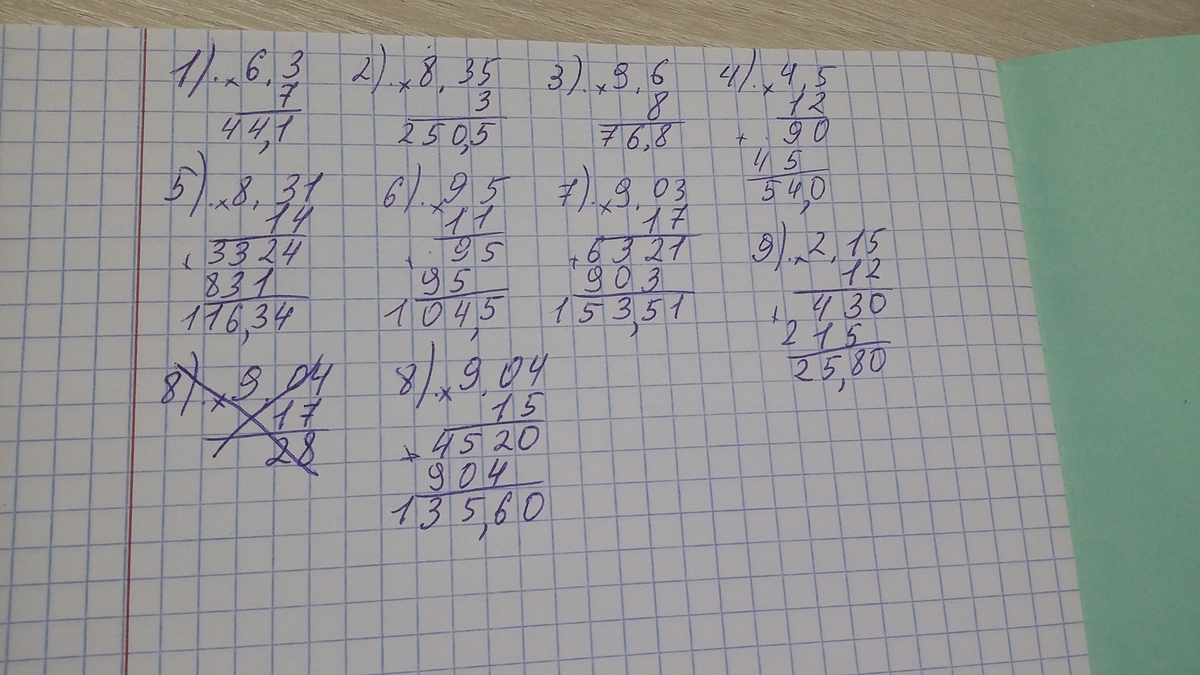 1). × 6,3
7
44,1
2). × 8,35
3
250,5
3). × 9,6
8
76,8
4). × 4,5
12
+ 90
45
54,0
5). × 8,31
14
+ 3324
831
116,34
6). × 9 5
11
+ 95
95
104,5
7). × 9,03
17
+ 6321
903
153,51
9). × 2,15
12
+ 430
215
25,80
8). × 9,04
17
28
8). × 9,04
15
+ 4520
904
135,60